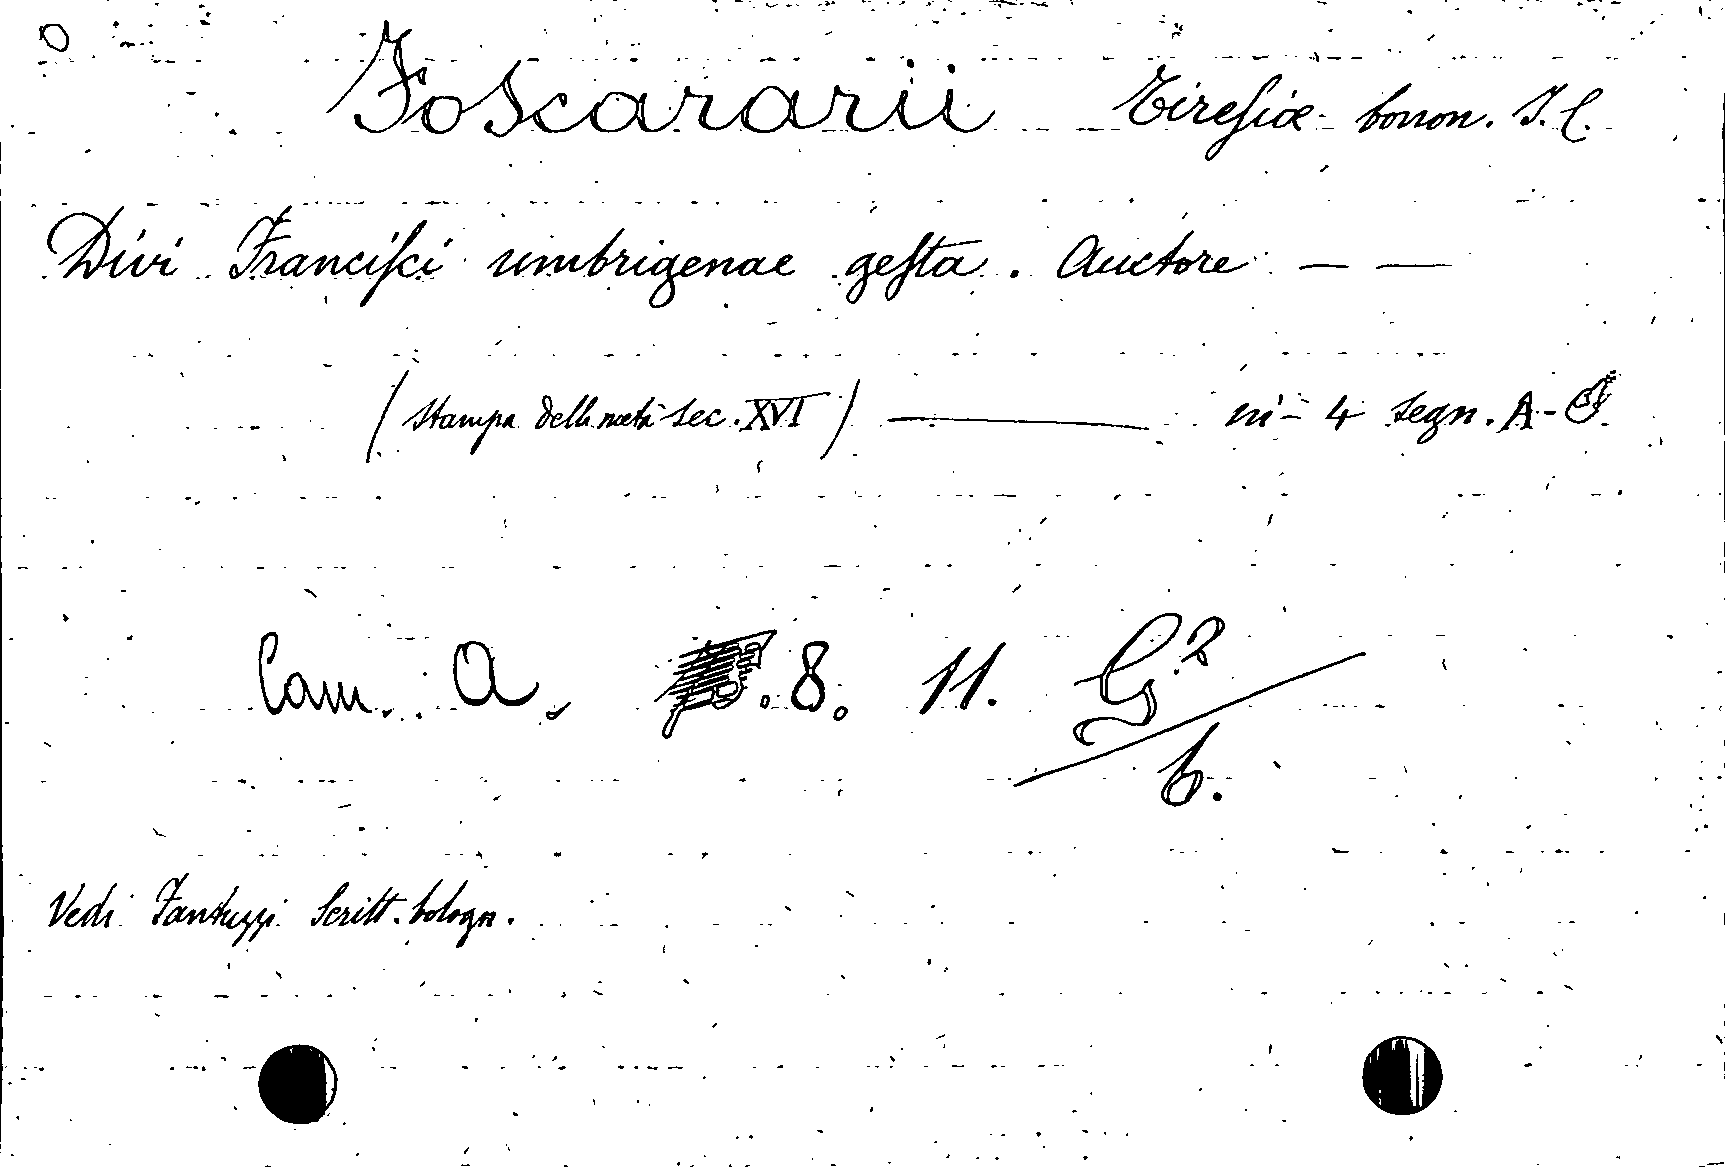 Foscararii Tiresiæ bonon. J. C.
Divi Franciſci umbrigenae geſta. Auctore — —
(Stampa della metà sec. XVI) — in-4 segn. A-
Cam. A. .8. 11. G2/b.
Vedi Fantuzzi Scritt. bologn.